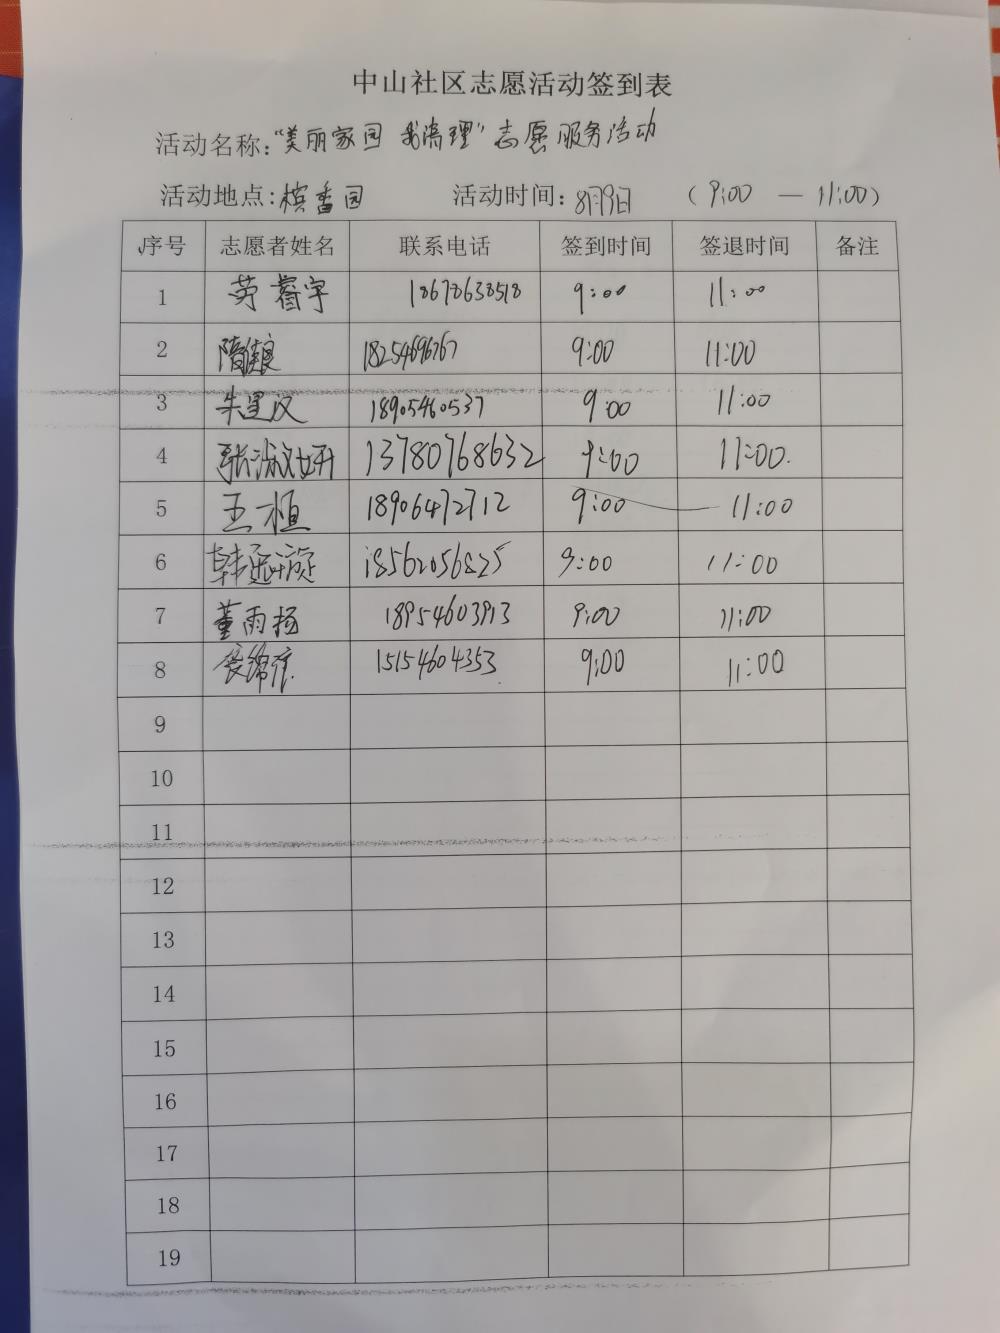 中山社区志愿活动签到表
活动名称:“美丽家园 我清理”志愿服务活动
活动地点:槟香园 活动时间:8月9日 (9:00 — 11:00)
序号 志愿者姓名 联系电话 签到时间 签退时间 备注
1 英睿宇 18678638518 9:00 11:00
2 18254696767 9:00 11:00
3 18905460537 9:00 11:00
4 13780768632 9:00 11:00.
5 王桓 18906472712 9:00 11:00
6 18562056825 9:00 11:00
7 董雨扬 18954603913 9:00 11:00
8 15154604353 9:00 11:00
9
10
11
12
13
14
15
16
17
18
19